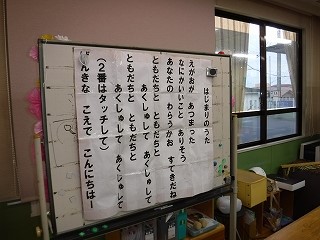 はじまりのうた
えがおが あつまった
なにかいいこと ありそう
あなたの わらうかお すてきだね
ともだちと ともだちと
あくしゅして あくしゅして
ともだちと ともだちと
あくしゅして あくしゅして
(２番はタッチして)
げんきな こえで こんにちはー